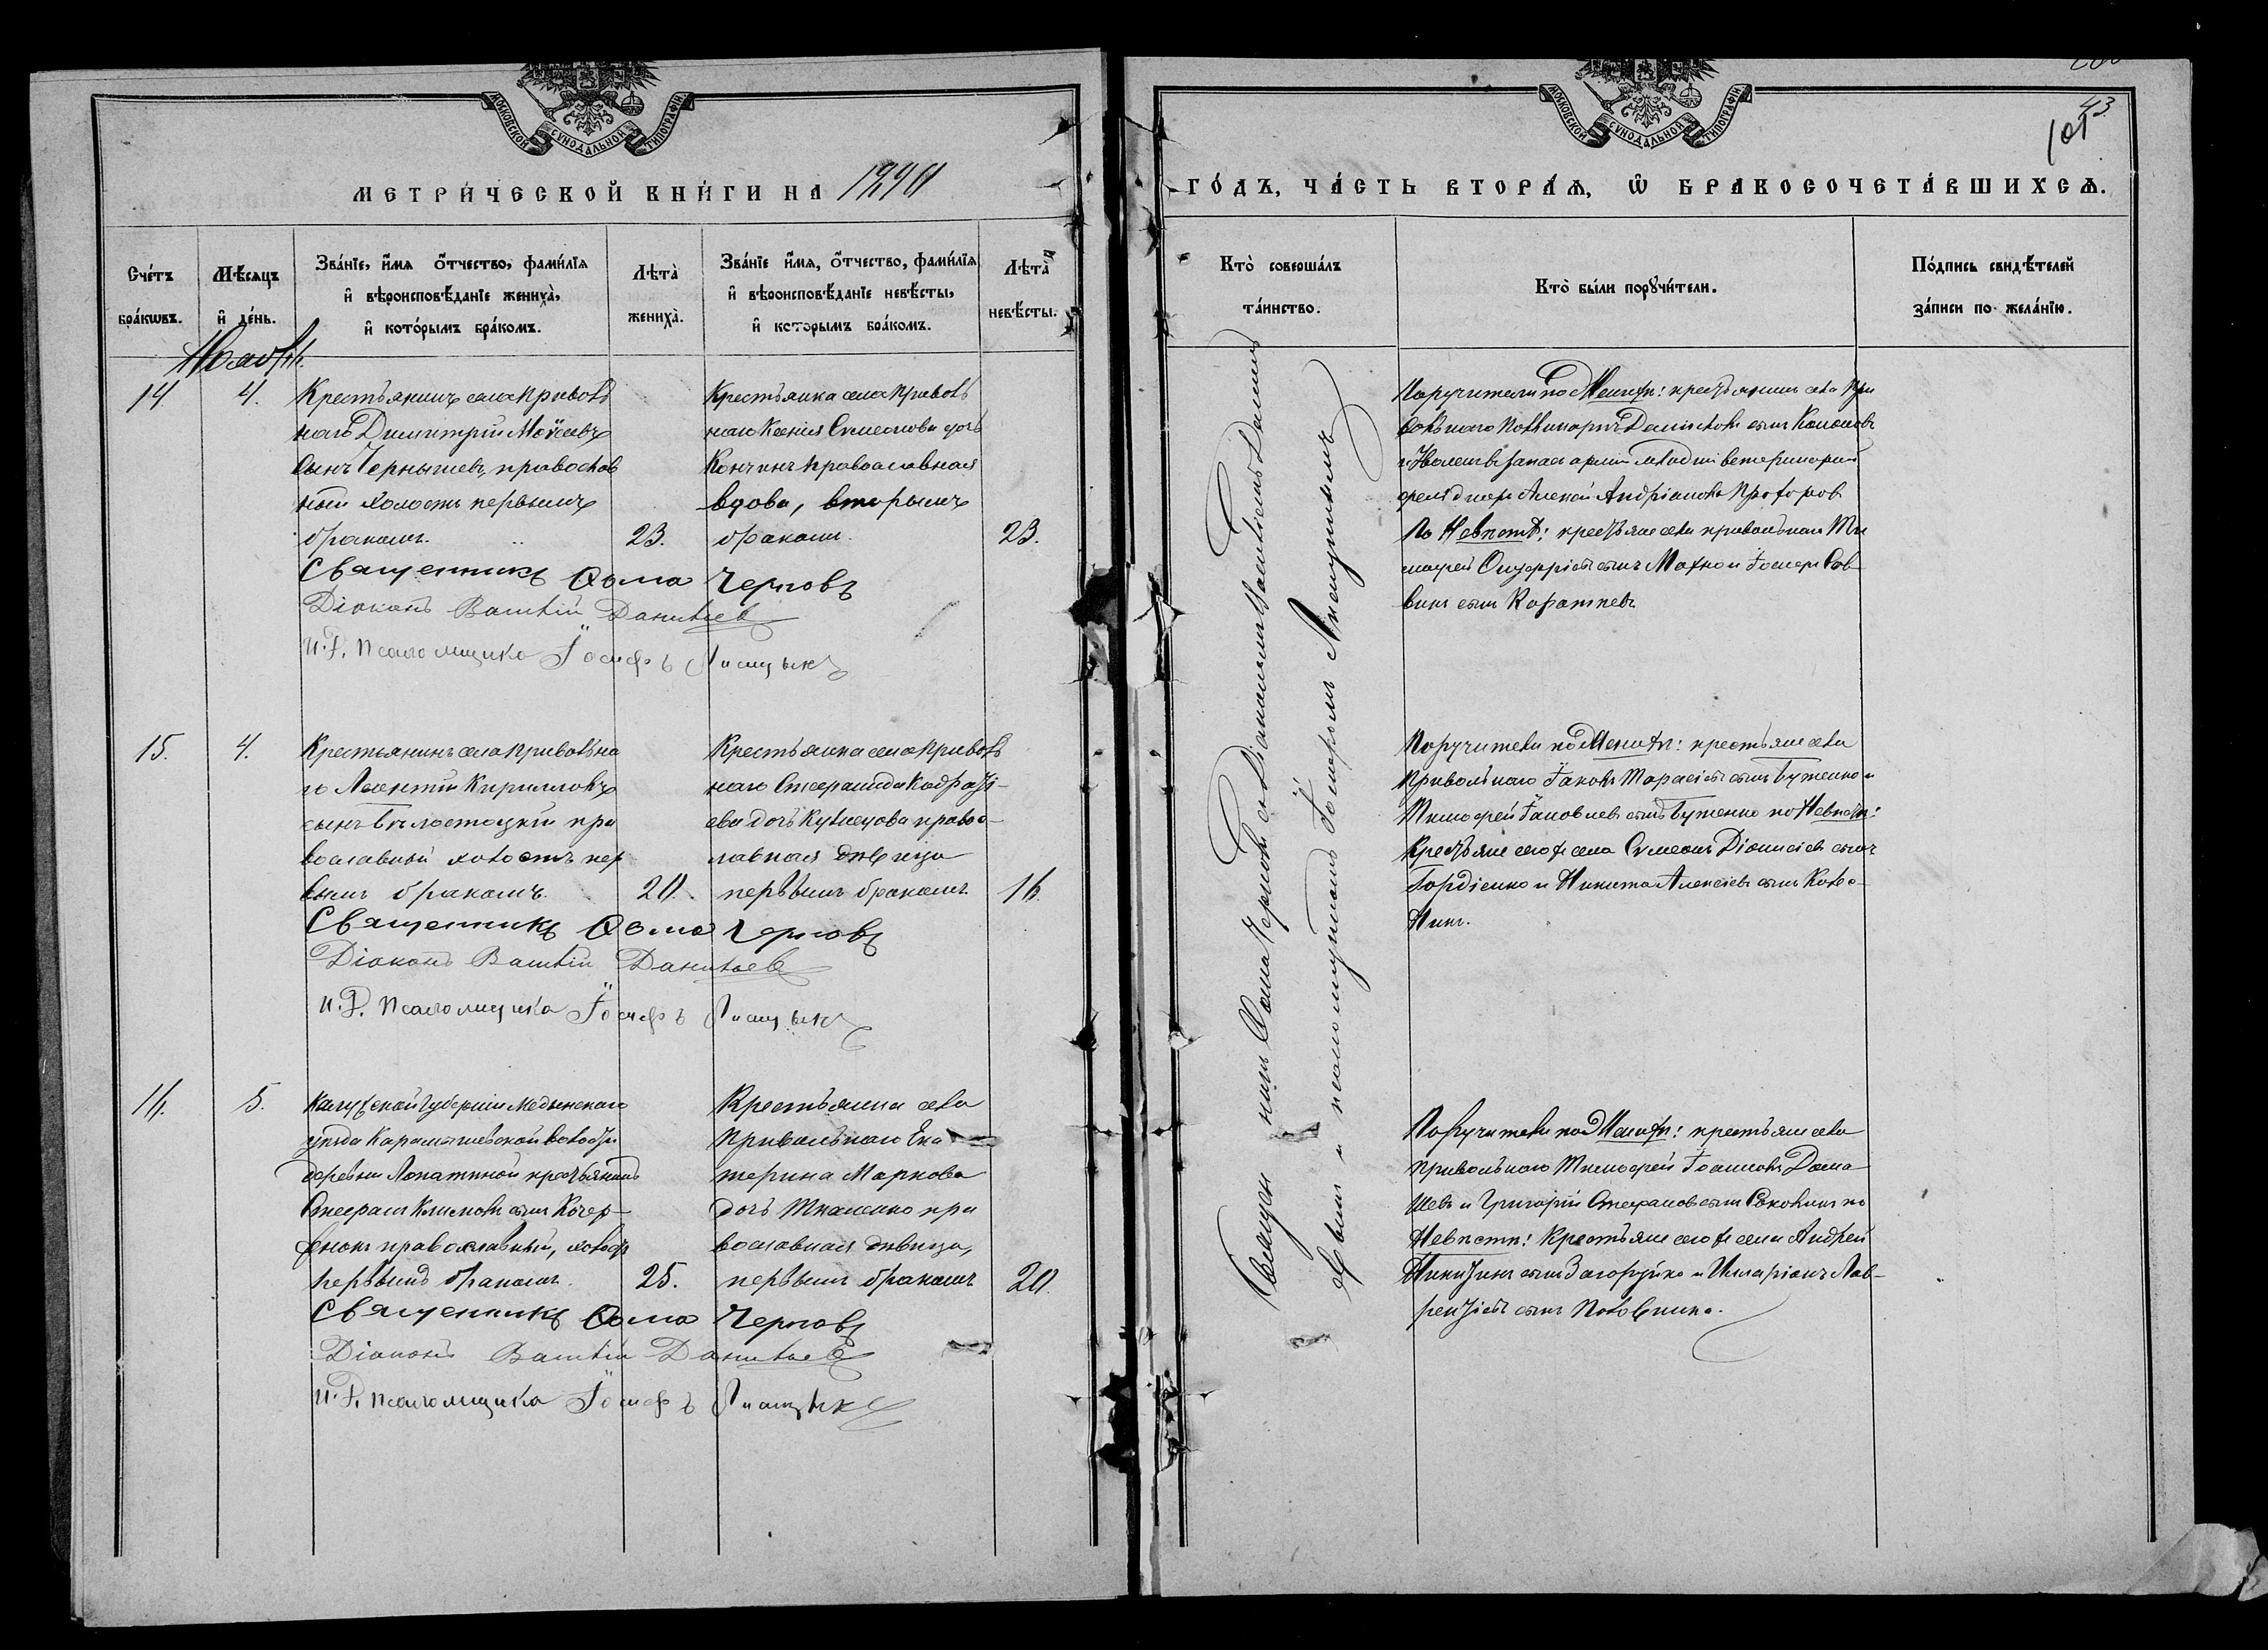 МОСКОВСКОЙ СУНОДАЛЬНОЙ ТИПОГРАФІИ
МЕТРИ́ЧЕСКОЙ КНИ́ГИ НА
Сче́тъ бра́кѡвъ.
Мѣ́сяцъ и҆ де́нь.
Зва́нїе, и҆́мя ѻ҆́тчество, фами́лїя
и҆ вѣроисповѣ́данїе жениха̀,
и҆ кото́рымъ бра́комъ.
Лѣта̀ жениха̀.
Зва́нїе и҆́мя, ѻ҆́тчество, фами́лїя
и҆ вѣроисповѣ́данїе невѣ́сты,
и҆ кото́рымъ бра́комъ.
Лѣта̀ невѣ́сты.
Ноябрь.
14. 4.
Крестьянинъ села Приволь
наго Димитрій Моѵсеевъ
сынъ Чернышевъ, православ
ный холостъ первымъ
бракомъ. 23.
Крестьянка села Приволь
наго Ксенія Симеонова дочь
православная
вдова, вторымъ
бракомъ. 23.
Священникъ Ѳома Черновъ
Діаконъ Василій Данилаев
И.д. Псаломщика Іосифъ
15. 4.
Крестьянинъ села Привольна
го Леонтій Кирилловъ
сынъ Бѣлостоцкій пра
вославный холостъ пер
вымъ бракомъ. 20.
Крестьянка села Приволь
наго Стефанида Кодрать
ева дочь Кузнецова правос
лавная дѣвица
первымъ бракомъ 16.
Священникъ Ѳома Черновъ
Діаконъ Василій Данилаев
И.д. Псаломщика Іосифъ
16. 5.
Калужской губерніи Медынскаго
уѣзда Карамышевской волости
деревни Лопатиной крестьянинъ
Стефанъ Климовъ сынъ
православный, холостъ
первымъ бракомъ. 25.
Крестьянка села
Привольнаго Ека
терина Маркова
дочь Ткаченко пра
вославная дѣвица,
первымъ бракомъ 20.
Священникъ Ѳома Черновъ
Діаконъ Василій Данилаев
И.д. Псаломщика Іосифъ
МОСКОВСКОЙ СУНОДАЛЬНОЙ ТИПОГРАФІИ
43
ГО́ДЪ, ЧА́СТЬ ВТОРА́Я, Ѡ҆ БРАКОСОЧЕТА́ВШИХСЯ.
Кто̀ соверша́лъ та́инство.
Кто̀ бы́ли порꙋчи́тели.
По́дпись свидѣ́телей за́писи по жела́нїю.
Священникъ Ѳома Черновъ съ Діакономъ Василіемъ
и псаломщикомъ Іосифомъ
Поручители по Женихѣ: крестьянинъ села При
вольнаго Даниловъ сынъ
запаса арміи младшій ветеринарный
фельдшеръ Алексей Андріановъ Прохоровъ
По Невѣстѣ: крестьяне села Привольнаго Ти
мофей Онуфріевъ сынъ Махно и Іосифъ Сав
винъ сынъ
Поручители по Женихѣ: крестьяне села
Привольнаго Іаковъ Тарасіевъ сынъ Буженко и
Тимофей Іаковлевъ сынъ Буженко по Невѣстѣ:
Крестьяне сего же села Симеонъ Діонисіевъ сынъ
Гордіенко и Никита Алексѣевъ сынъ
Поручители по Женихѣ: крестьяне села
Привольнаго Тимофей Іоанновъ Дома
шевъ и Григорій Стефановъ сынъ по
Невѣстѣ: Крестьяне сего же села Андрей
Никитинъ сынъ Загоруйко и Илларіонъ Лав
рентіевъ сынъ